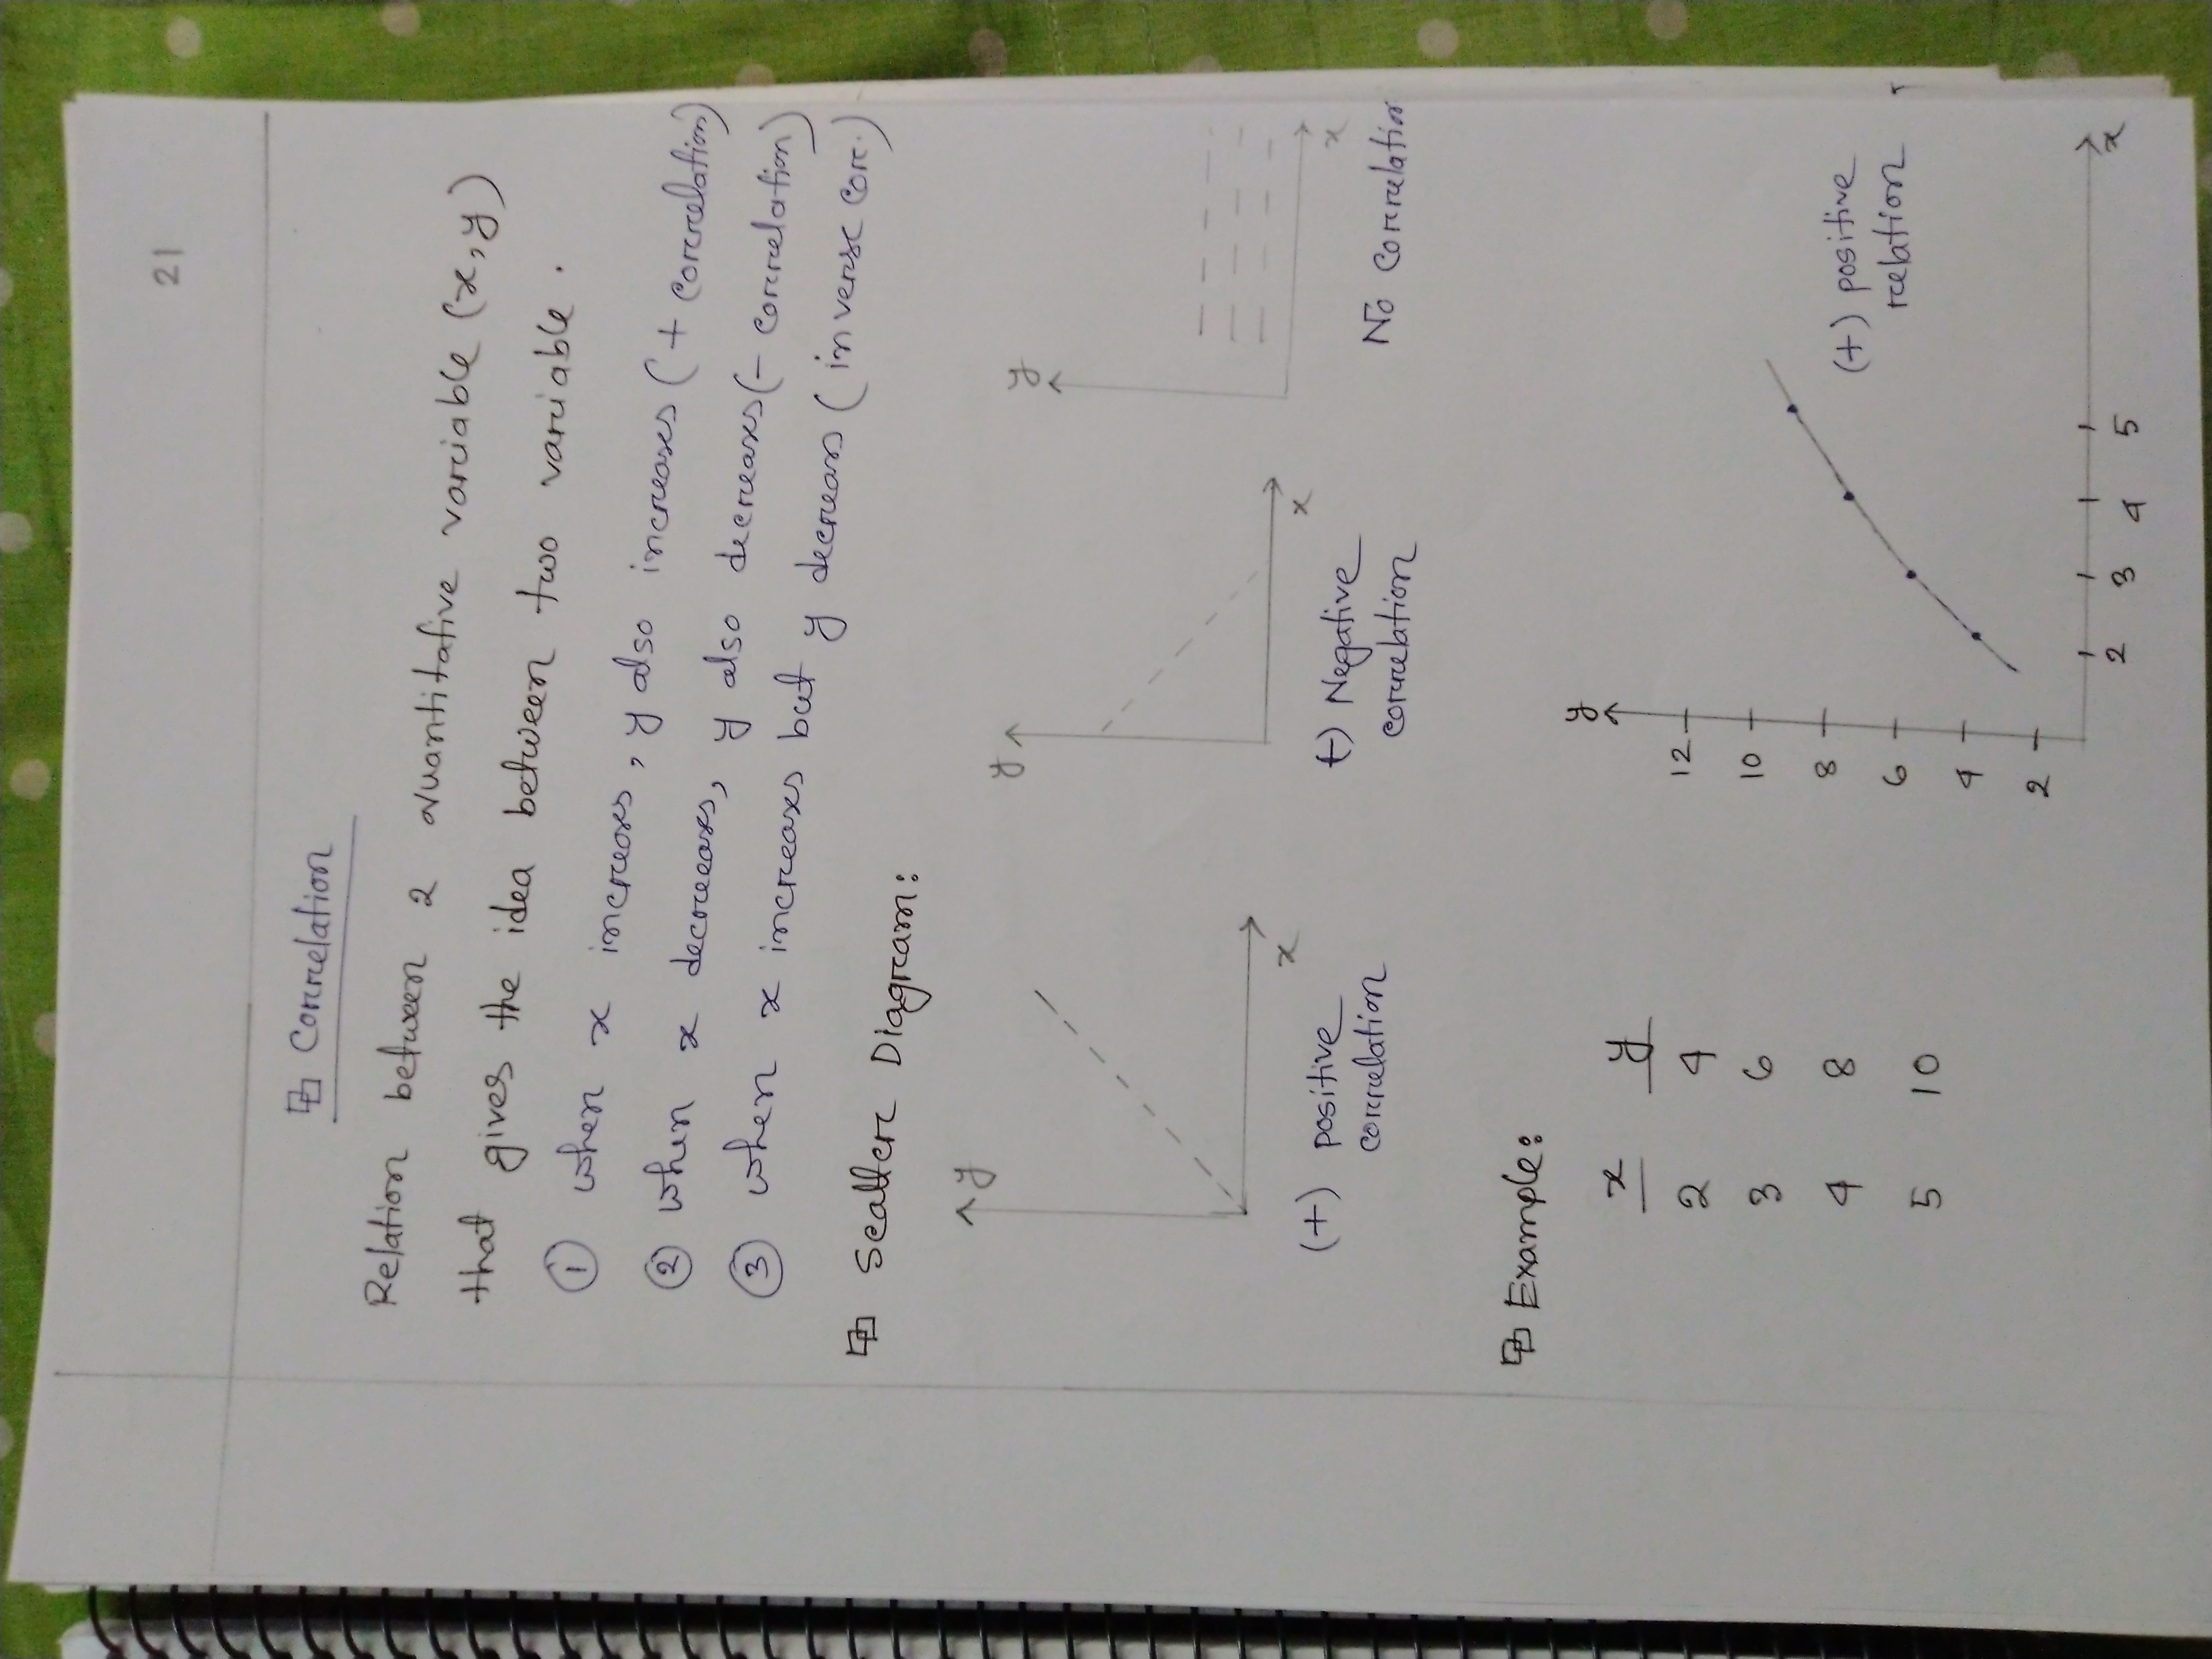 21
Correlation
Relation between 2 quantitative variable (x,y)
that gives the idea between two variable.
① when x increases, y also increases (+ correlation)
② when x decreases, y also decreases (- correlation)
③ when x increases but y decreas (inverse corr.)
Scatter Diagram:
y
x
(+) positive
correlation
y
x
(-) Negative
correlation
y
x
No correlation
Example:
x y
2 4
3 6
4 8
5 10
y
12
10
8
6
4
2
2 3 4 5
x
(+) positive
relation